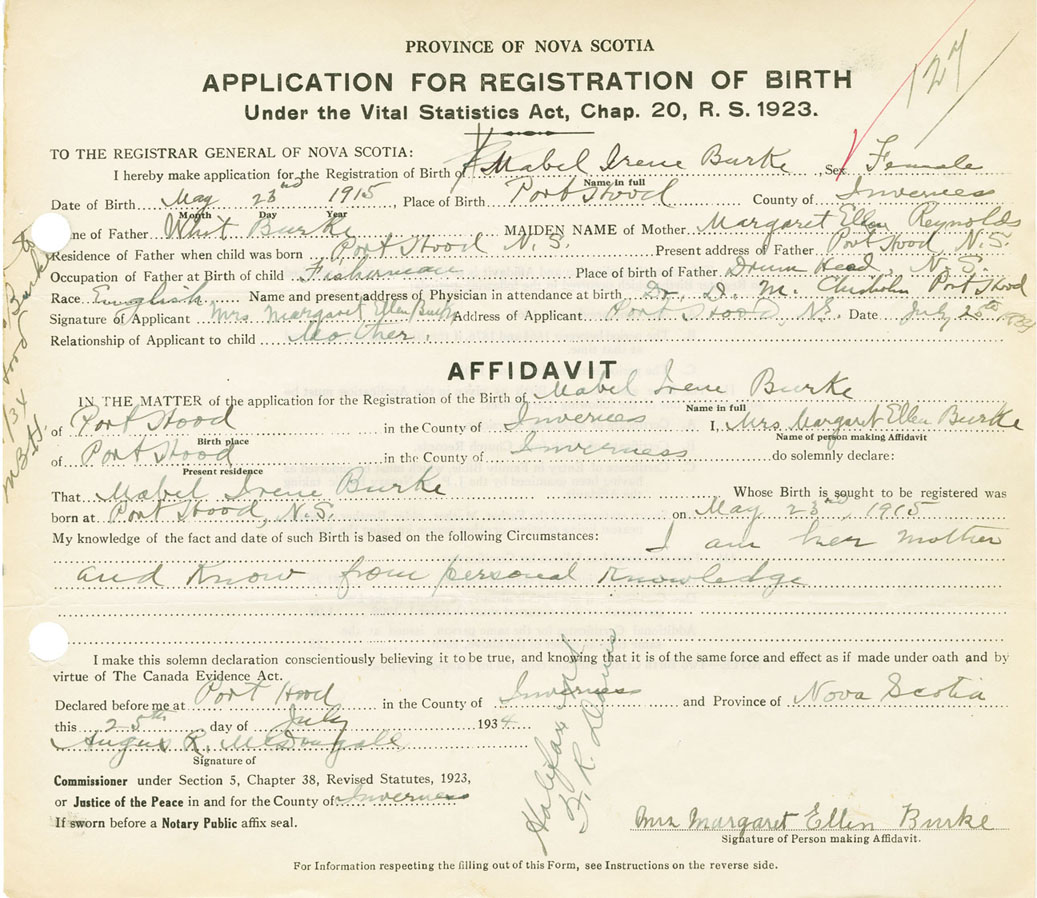 127
PROVINCE OF NOVA SCOTIA
APPLICATION FOR REGISTRATION OF BIRTH
Under the Vital Statistics Act, Chap. 20, R. S. 1923.
TO THE REGISTRAR GENERAL OF NOVA SCOTIA:
I hereby make application for the Registration of Birth of Mabel Irene Burke, Sex Female
Name in full
Date of Birth May 23nd 1915, Place of Birth Port Hood County of Inverness
Month Day Year
me of Father Whit Burke MAIDEN NAME of Mother Margaret Ellen Reynolds
Residence of Father when child was born Port Hood N.S. Present address of Father Port Hood, N.S.
Occupation of Father at Birth of child Fisherman Place of birth of Father Drum Head, N.S.
Race English Name and present address of Physician in attendance at birth Dr. D. M. Chisholm Port Hood
Signature of Applicant Mrs Margaret Ellen Burke Address of Applicant Port Hood, N.S. Date July 25th 1934
Relationship of Applicant to child Mother.
AFFIDAVIT
IN THE MATTER of the application for the Registration of the Birth of Mabel Irene Burke
Name in full
of Port Hood in the County of Inverness I, Mrs. Margaret Ellen Burke
Birth place Name of person making Affidavit
of Port Hood in the County of Inverness do solemnly declare:
Present residence
That Mabel Irene Burke Whose Birth is sought to be registered was
born at Port Hood, N.S. on May 23nd, 1915
My knowledge of the fact and date of such Birth is based on the following Circumstances: I am her mother
and know from personal knowledge
I make this solemn declaration conscientiously believing it to be true, and knowing that it is of the same force and effect as if made under oath and by
virtue of The Canada Evidence Act.
Declared before me at Port Hood in the County of Inverness and Province of Nova Scotia
this 25th day of July 1934
Angus R. McDougall
Signature of
Commissioner under Section 5, Chapter 38, Revised Statutes, 1923,
or Justice of the Peace in and for the County of Inverness
If sworn before a Notary Public affix seal.
Mrs Margaret Ellen Burke
Signature of Person making Affidavit.
For Information respecting the filling out of this Form, see Instructions on the reverse side.
Halifax
F. R. Davis